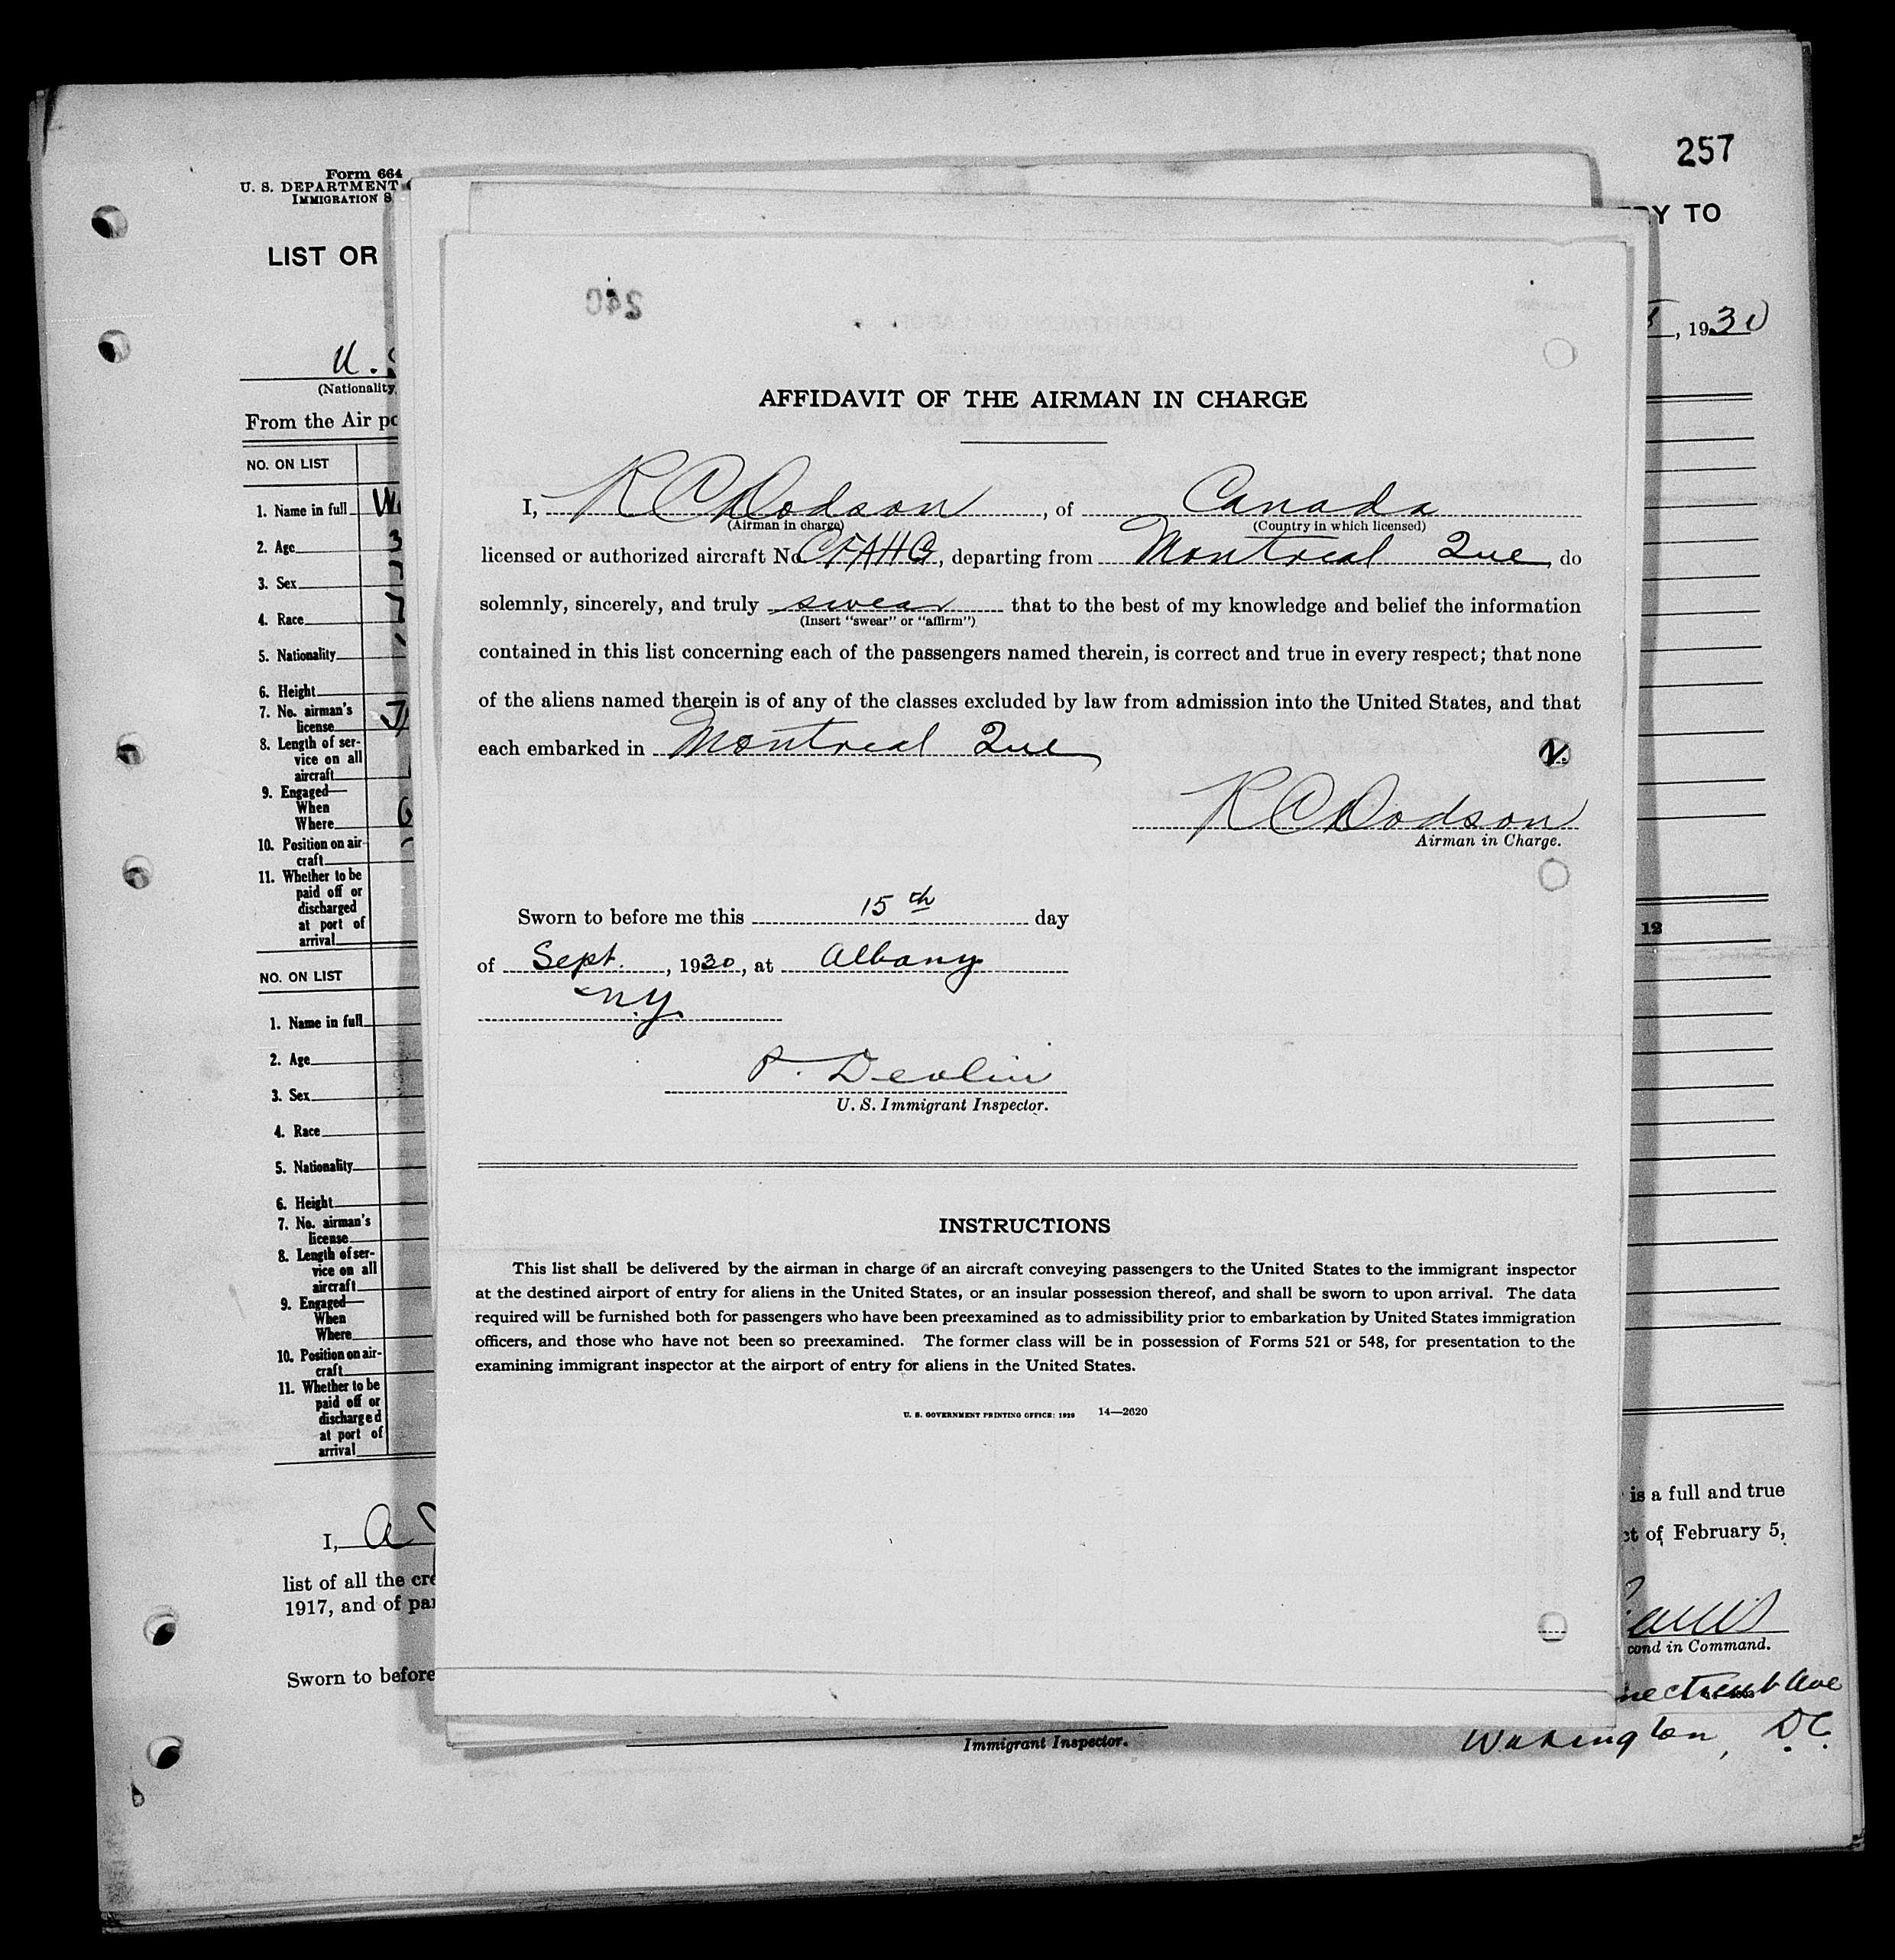 257
Form 664
U. S. DEPARTMENT
IMMIGRATION S
LIST OR
RY TO
, 1930
U. S
(Nationality
From the Air po
NO. ON LIST
1. Name in full
2. Age
3. Sex
4. Race
5. Nationality
6. Height
7. No. airman's
license
8. Length of ser-
vice on all
aircraft
9. Engaged—
When
Where
10. Position on air-
craft
11. Whether to be
paid off or
discharged
at port of
arrival
12
NO. ON LIST
1. Name in full
2. Age
3. Sex
4. Race
5. Nationality
6. Height
7. No. airman's
license
8. Length of ser-
vice on all
aircraft
9. Engaged—
When
Where
10. Position on air-
craft
11. Whether to be
paid off or
discharged
at port of
arrival
I, A
list of all the cre
1917, and of par
Sworn to before
240
AFFIDAVIT OF THE AIRMAN IN CHARGE
I, R C Dodson, of Canada
(Airman in charge) (Country in which licensed)
licensed or authorized aircraft No. CFAHG, departing from Montreal Que, do
solemnly, sincerely, and truly swear that to the best of my knowledge and belief the information
(Insert "swear" or "affirm")
contained in this list concerning each of the passengers named therein, is correct and true in every respect; that none
of the aliens named therein is of any of the classes excluded by law from admission into the United States, and that
each embarked in Montreal Que
R C Dodson
Airman in Charge.
Sworn to before me this 15th day
of Sept., 1930, at Albany
N.Y.
P. Devlin
U. S. Immigrant Inspector.
INSTRUCTIONS
This list shall be delivered by the airman in charge of an aircraft conveying passengers to the United States to the immigrant inspector
at the destined airport of entry for aliens in the United States, or an insular possession thereof, and shall be sworn to upon arrival. The data
required will be furnished both for passengers who have been preexamined as to admissibility prior to embarkation by United States immigration
officers, and those who have not been so preexamined. The former class will be in possession of Forms 521 or 548, for presentation to the
examining immigrant inspector at the airport of entry for aliens in the United States.
U. S. GOVERNMENT PRINTING OFFICE: 1929 14—2620
is a full and true
ct of February 5,
cond in Command.
necticut Ave
Wahington, D.C.
Immigrant Inspector.